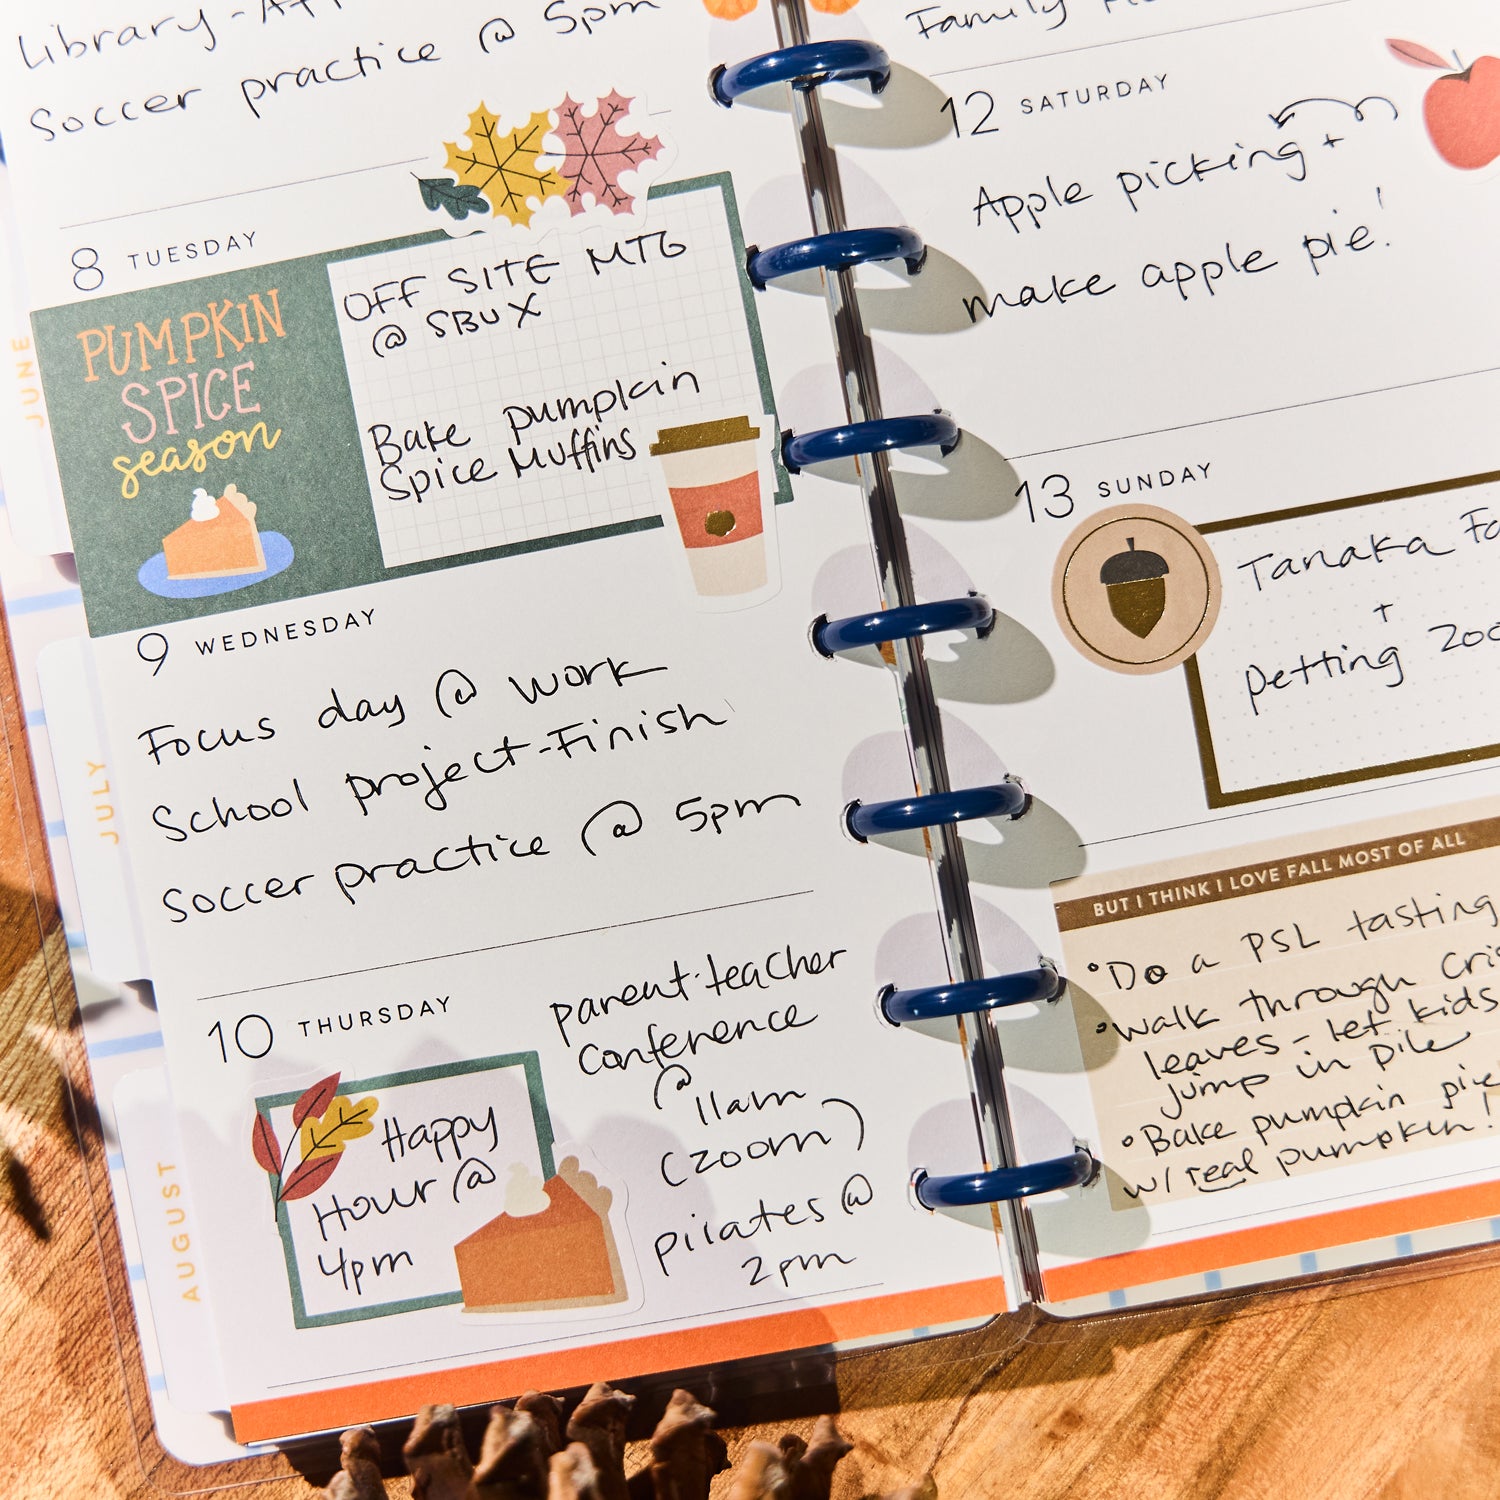 Library -
Soccer practice @ 5pm
8 TUESDAY
PUMPKIN
SPICE
season
OFF SITE MTG
@ SBUX
Bake pumpkin
Spice Muffins
9 WEDNESDAY
Focus day @ work
School project-Finish
Soccer practice @ 5pm
10 THURSDAY
Happy
Hour @
4pm
parent-teacher
Conference
@
11am
(zoom)
pilates @
2pm
JUNE
JULY
AUGUST
Family
12 SATURDAY
Apple picking +
make apple pie!
13 SUNDAY
Tanaka
+
petting zoo
BUT I THINK I LOVE FALL MOST OF ALL
• Do a PSL tasting
• walk through
leaves - let kids
jump in pile
• Bake pumpkin pie
w/ real pumpkin!